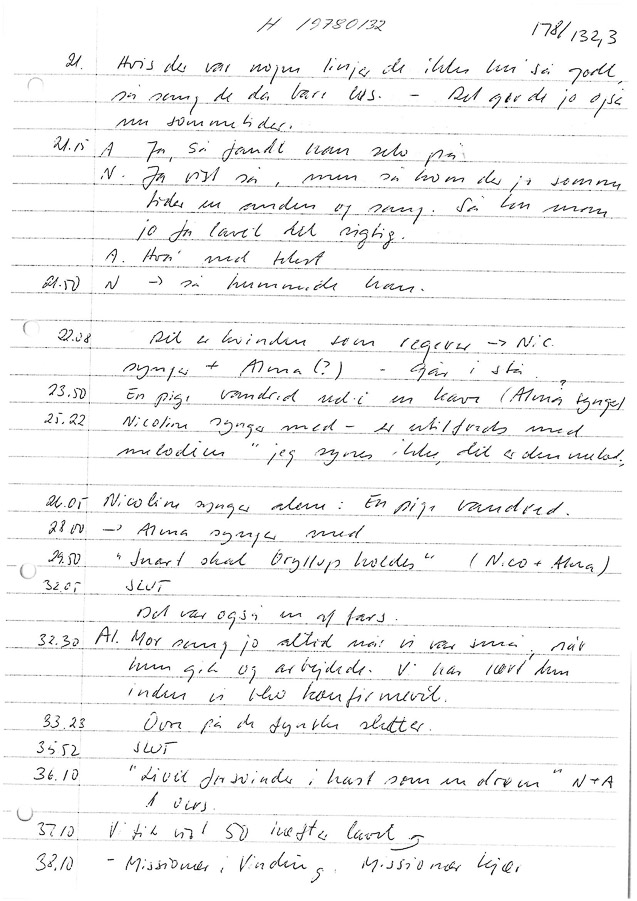 H 19780132
178/132,3
21. Hvis der var nogen linjer de ikke ku' så godt,
så sang de da bare los. - Det gør de jo også
nu sommetider.
21.15 A Ja, så fandt han selv på
N. Ja vist så, men så kom der jo somme
tider en anden og sang. Så kun man
jo få lavet det rigtig.
A. Hva' med tekst
21.50 N -> så hummede han.
22.08 Det er kvinden som regerer -> Nic.
synger + Alma (?) - går i stå.
23.50 En pige vandred ned i en have (Alma? synger
25.22 Nicoline synger med - er utilfreds med
melodien "jeg synes ikke, det er den melodi,
26.05 Nicoline synger alene: En pige vandred.
28.00 -> Alma synger med
29.50 "Snart skal Bryllup holdes" (Nico + Alma)
32.05 SLUT
Det var også en af fars.
32.30 Al. Mor sang jo altid når vi var små, når
hun gik og arbejdede. Vi har lært dem
inden vi blev konfirmeret.
33.23 Ovre på de fynske sletter.
35.52 SLUT
36.10 "Livet forsvinder i hast som en drøm" N+A
1 vers.
37.10 Vi fik vist 50 hæfter lavet
38.10 - Missionær i Vinding, Missionær Kjær